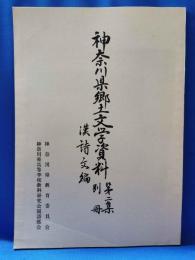 神奈川県郷土文学資料 第二集
別冊
漢詩文編
神奈川県教育委員会
神奈川県高等学校教科研究会国語部会